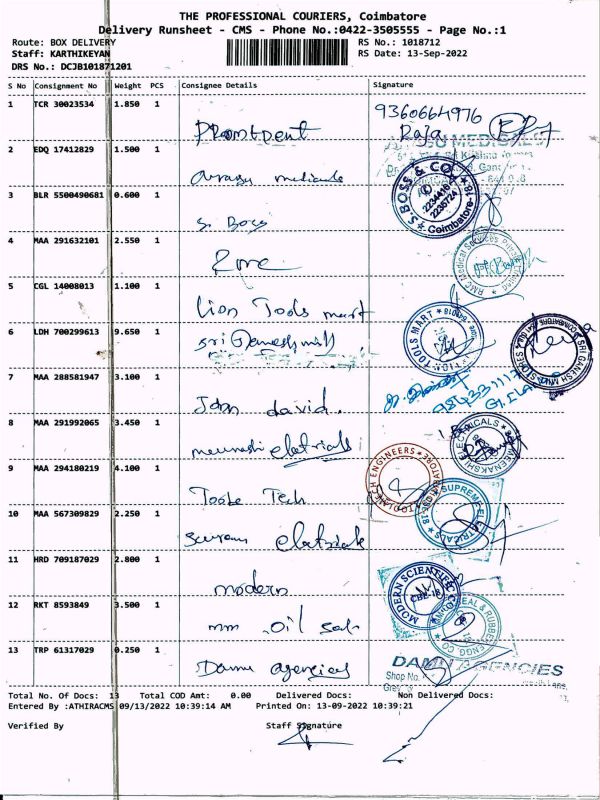 THE PROFESSIONAL COURIERS, Coimbatore
Delivery Runsheet - CMS - Phone No.:0422-3505555 - Page No.:1
Route: BOX DELIVERY
RS No.: 1018712
Staff: KARTHIKEYAN
RS Date: 13-Sep-2022
DRS No.: DCJB101871201
S No Consignment No Weight PCS Consignee Details Signature
1 TCR 30023534 1.850 1
9360664976
Promtdent Raja
2 EDQ 17412829 1.500 1
medicals
3 BLR 5500490681 0.600 1
S. BOSS & CO.
2234416
2235724
Coimbatore
S. Boss
4 MAA 291632101 2.550 1
RMC Medical Services Private
5 CGL 14008013 1.100 1
Lion Tools mart
LION TOOLS MART
6 LDH 700299613 9.650 1
Sri Ganesh mill
SRI GANESH MILL STORES COIMBATORE
7 MAA 288581947 3.100 1
John david.
8 MAA 291992065 3.450 1
eletricals
MEENAKSHI ELECTRICALS
9 MAA 294180219 4.100 1
Toole Tech
TOOLMECH ENGINEERS
10 MAA 567309829 2.250 1
eletricals
SUPREME ELECTRICALS
11 HRD 709187029 2.800 1
modern
MODERN SCIENTIFIC CO
CBE-18
12 RKT 8593849 3.500 1
mm oil seal
SEAL & RUBBER ENGG. CO
13 TRP 61317029 0.250 1
Damu agencies
DAMU AGENCIES
Shop No.
Total No. Of Docs: 13 Total COD Amt: 0.00 Delivered Docs: Non Delivered Docs:
Entered By :ATHIRACMS 09/13/2022 10:39:14 AM Printed On: 13-09-2022 10:39:21
Verified By Staff Signature